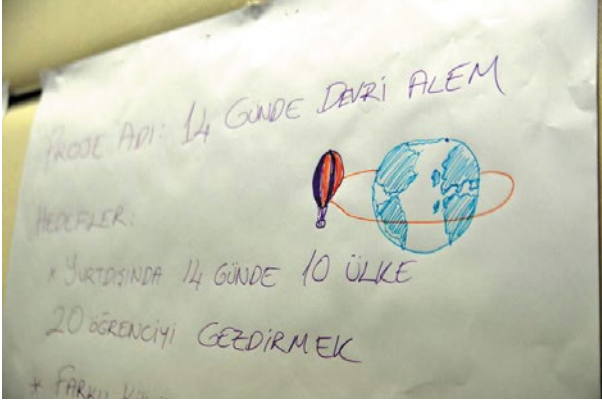 PROJE ADI: 14 GÜNDE DEVRİ ALEM
HEDEFLER:
* YURTDIŞINDA 14 GÜNDE 10 ÜLKE
20 ÖĞRENCİYİ GEZDİRMEK
* FARKLI